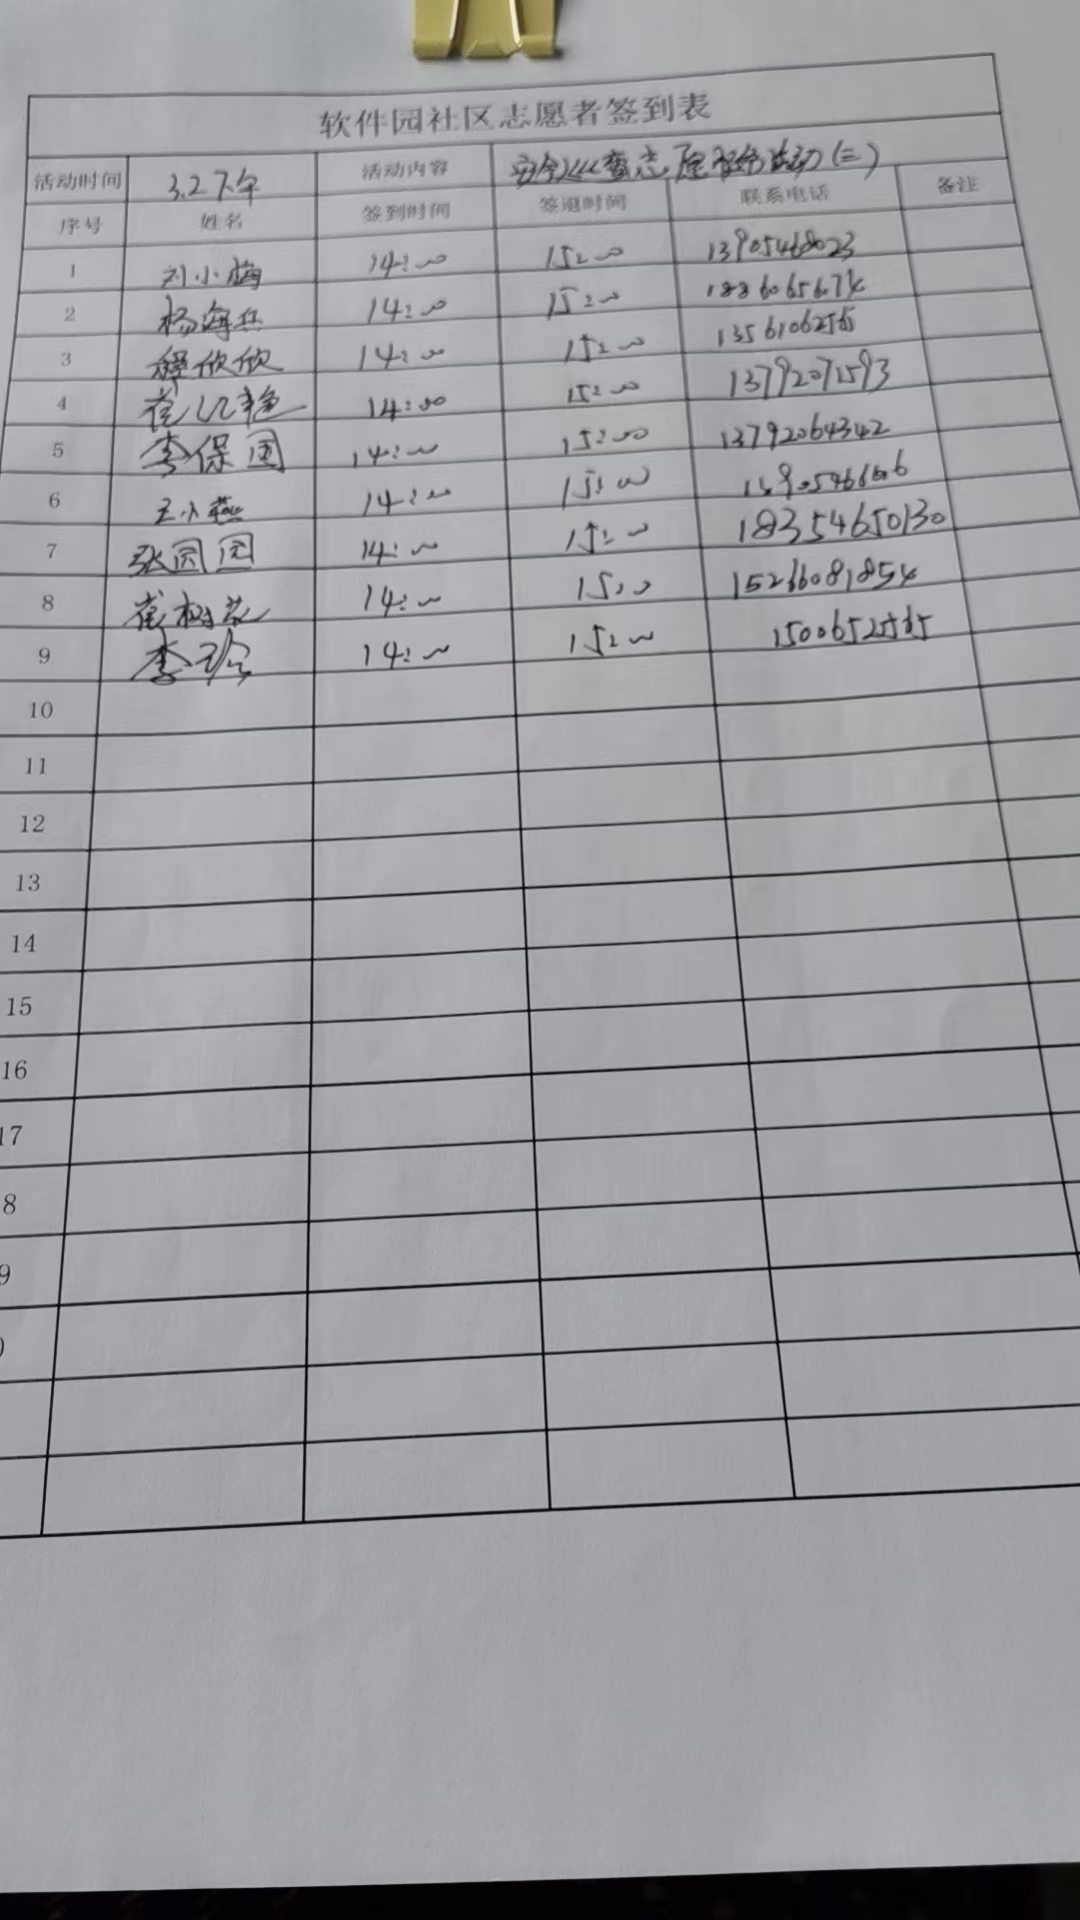 软件园社区志愿者签到表
活动时间 3.2下午 活动内容 志愿服务活动(二)
序号 姓名 签到时间 签退时间 联系电话 备注
1 刘小梅 14:00 15:00 13905468023
2 杨海兵 14:00 15:00
3 欣欣 14:00 15:00
4 崔 艳 14:00 15:00 13792071593
5 李保国 14:00 15:00 13792064342
6 王小燕 14:00 15:00
7 张园园 14:00 15:00 18354650130
8 崔树花 14:00 15:00 15266081854
9 李玲 14:00 15:00 15006525565
10
11
12
13
14
15
16
17
8
9